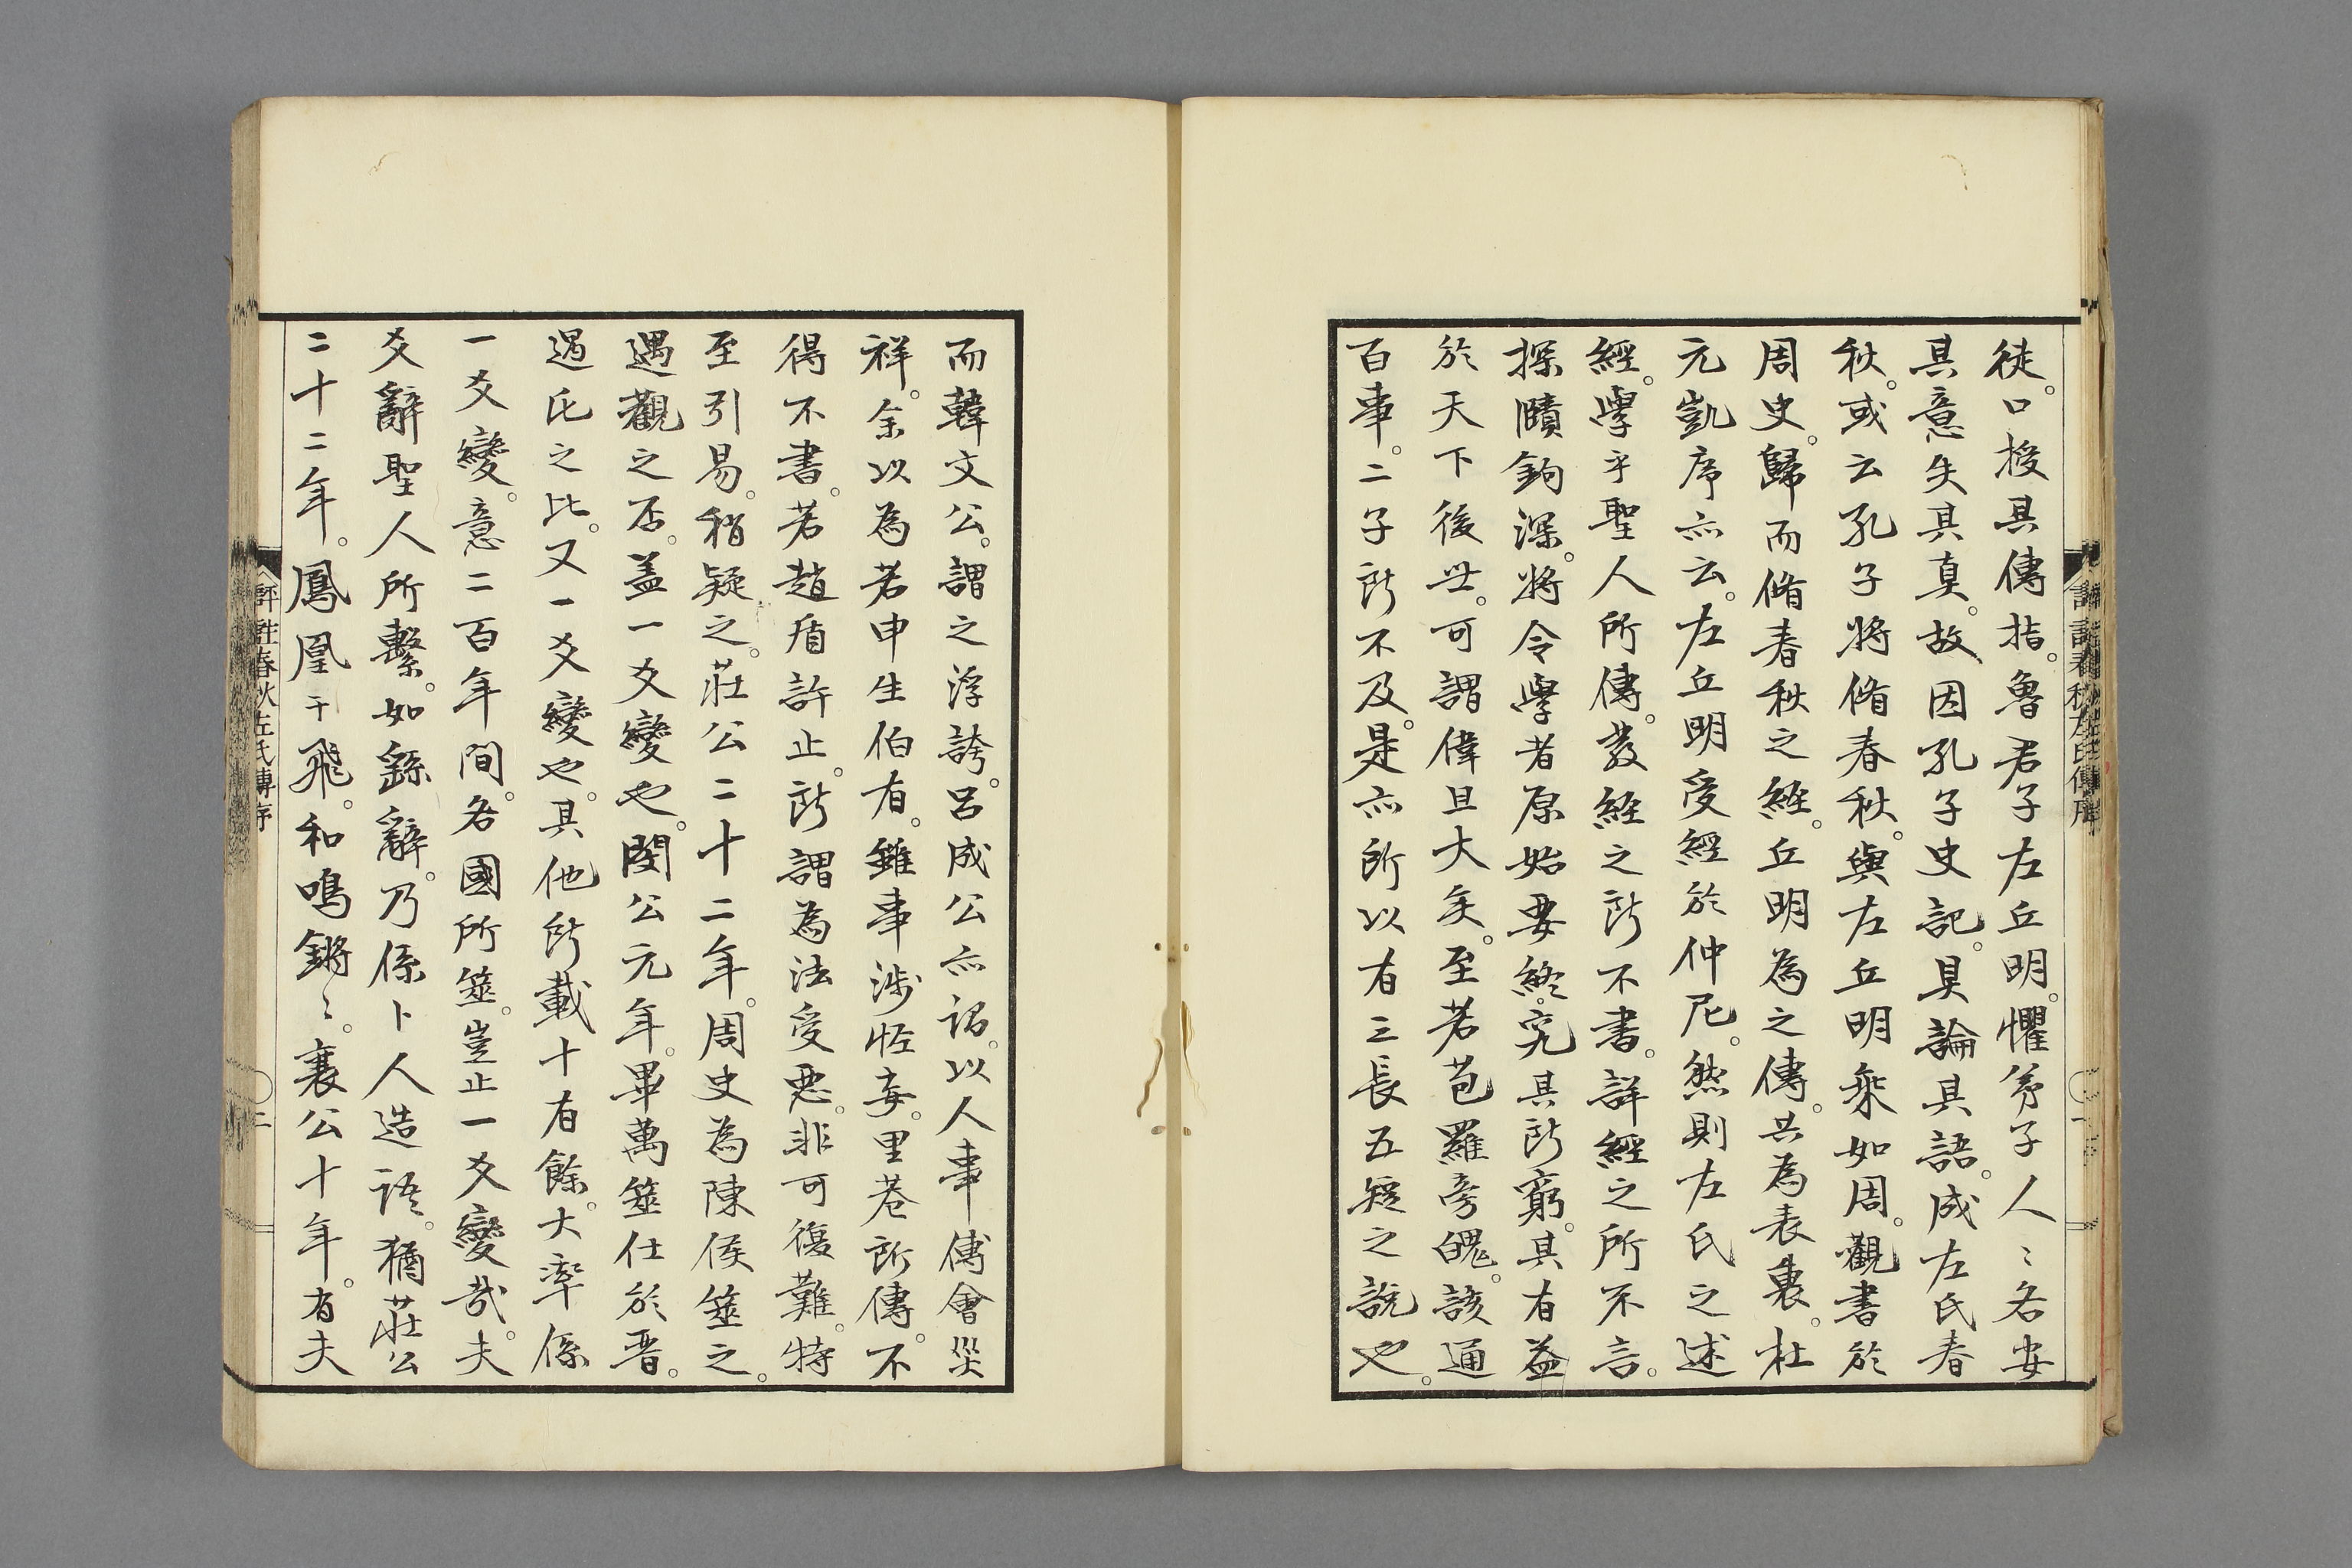 徒。口授其傳指。魯君子左丘明。懼弟子人〻名安
其意失其真。故因孔子史記。具論其語。成左氏春
秋。或云孔子將脩春秋。與左丘明乘如周。觀書於
周史。歸而脩春秋之經。丘明為之傳。共為表裏。杜
元凱序亦云。左丘明受經於仲尼。然則左氏之述
經。學乎聖人所傳。發經之所不書。詳經之所不言。
探賾鉤深。將令學者原始要終。究其所窮。其有益
於天下後世。可謂偉且大矣。至若苞羅旁魄。該通
百事。二子所不及。是亦所以有三長五短之說也。
而韓文公。謂之浮誇。呂成公亦謂。以人事傅會災
祥。余以為若申生伯有。雖事涉恠妄。里巷所傳。不
得不書。若趙盾許止。所謂為法受惡。非可復難。特
至引易。稍疑之。莊公二十二年。周史為陳侯筮之。
遇觀之否。盖一爻變也。閔公元年。畢萬筮仕於晉。
遇屯之比。又一爻變也。其他所載十有餘。大率係
一爻變。意二百年間。各國所筮。豈止一爻變哉。夫
爻辭聖人所繫。如繇辭。乃係卜人造語。猶莊公
二十二年。鳳凰于飛。和鳴鏘〻。襄公十年。有夫
評註春秋左氏傳序
二